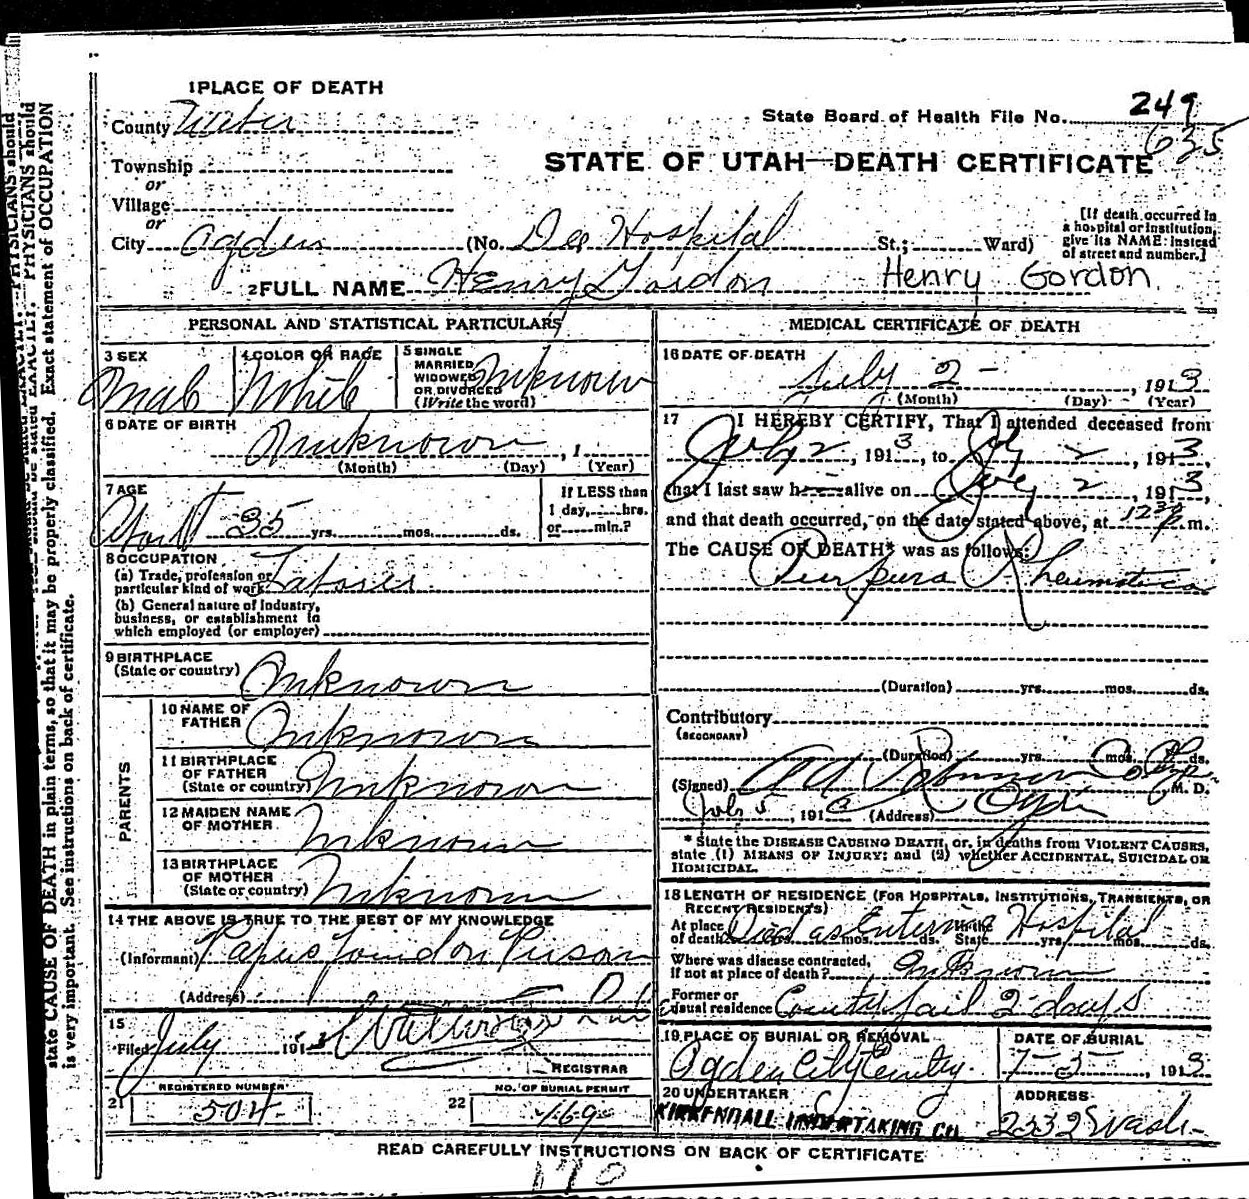 1 PLACE OF DEATH
County Weber
State Board of Health File No. 249
635
Township
or
Village
or
STATE OF UTAH—DEATH CERTIFICATE
City Ogden (No. Dee Hospital St.; Ward)
[If death occurred in
a hospital or institution,
give its NAME instead
of street and number.]
2 FULL NAME Henry Gordon Henry Gordon
PERSONAL AND STATISTICAL PARTICULARS
3 SEX
Male
4 COLOR OR RACE
White
5 SINGLE
MARRIED
WIDOWED
OR DIVORCED
(Write the word)
Unknown
6 DATE OF BIRTH
Unknown , 1
(Month) (Day) (Year)
7 AGE
About 35 yrs. mos. ds.
If LESS than
1 day, hrs.
or min.?
8 OCCUPATION
(a) Trade, profession or
particular kind of work Laborer
(b) General nature of Industry,
business, or establishment in
which employed (or employer)
9 BIRTHPLACE
(State or country) Unknown
PARENTS
10 NAME OF
FATHER Unknown
11 BIRTHPLACE
OF FATHER
(State or country) Unknown
12 MAIDEN NAME
OF MOTHER Unknown
13 BIRTHPLACE
OF MOTHER
(State or country) Unknown
14 THE ABOVE IS TRUE TO THE BEST OF MY KNOWLEDGE
(Informant) Papers found on Person
(Address)
15
Filed July 1913
REGISTRAR
REGISTERED NUMBER
21 504
NO. OF BURIAL PERMIT
22 469
MEDICAL CERTIFICATE OF DEATH
16 DATE OF DEATH
July 2 - , 1913
(Month) (Day) (Year)
17 I HEREBY CERTIFY, That I attended deceased from
July 2, 1913, to July 2, 1913,
that I last saw h alive on July 2, 1913,
and that death occurred, on the date stated above, at 12 30 p. m.
The CAUSE OF DEATH* was as follows:
Purpura Rheumatica
(Duration) yrs. mos. ds.
Contributory
(SECONDARY)
(Duration) yrs. mos. ds.
(Signed) M. D.
July 5, 191 (Address) Ogden
* State the DISEASE CAUSING DEATH, or, in deaths from VIOLENT CAUSES,
state (1) MEANS OF INJURY; and (2) whether ACCIDENTAL, SUICIDAL OR
HOMICIDAL.
18 LENGTH OF RESIDENCE (FOR HOSPITALS, INSTITUTIONS, TRANSIENTS, OR
RECENT RESIDENTS)
At place
of death Died as Entering Hospital yrs. mos. ds. In the State yrs. mos. ds.
Where was disease contracted,
if not at place of death? Unknown
Former or
usual residence County Jail 2 days
19 PLACE OF BURIAL OR REMOVAL
Ogden City Cemtry.
DATE OF BURIAL
7-3-, 1913
20 UNDERTAKER
KIRKENDALL UNDERTAKING CO.
ADDRESS
2332 Wash-
READ CAREFULLY INSTRUCTIONS ON BACK OF CERTIFICATE
170
state CAUSE OF DEATH in plain terms, so that it may be properly classified. Exact statement of OCCUPATION
is very important. See instructions on back of certificate.